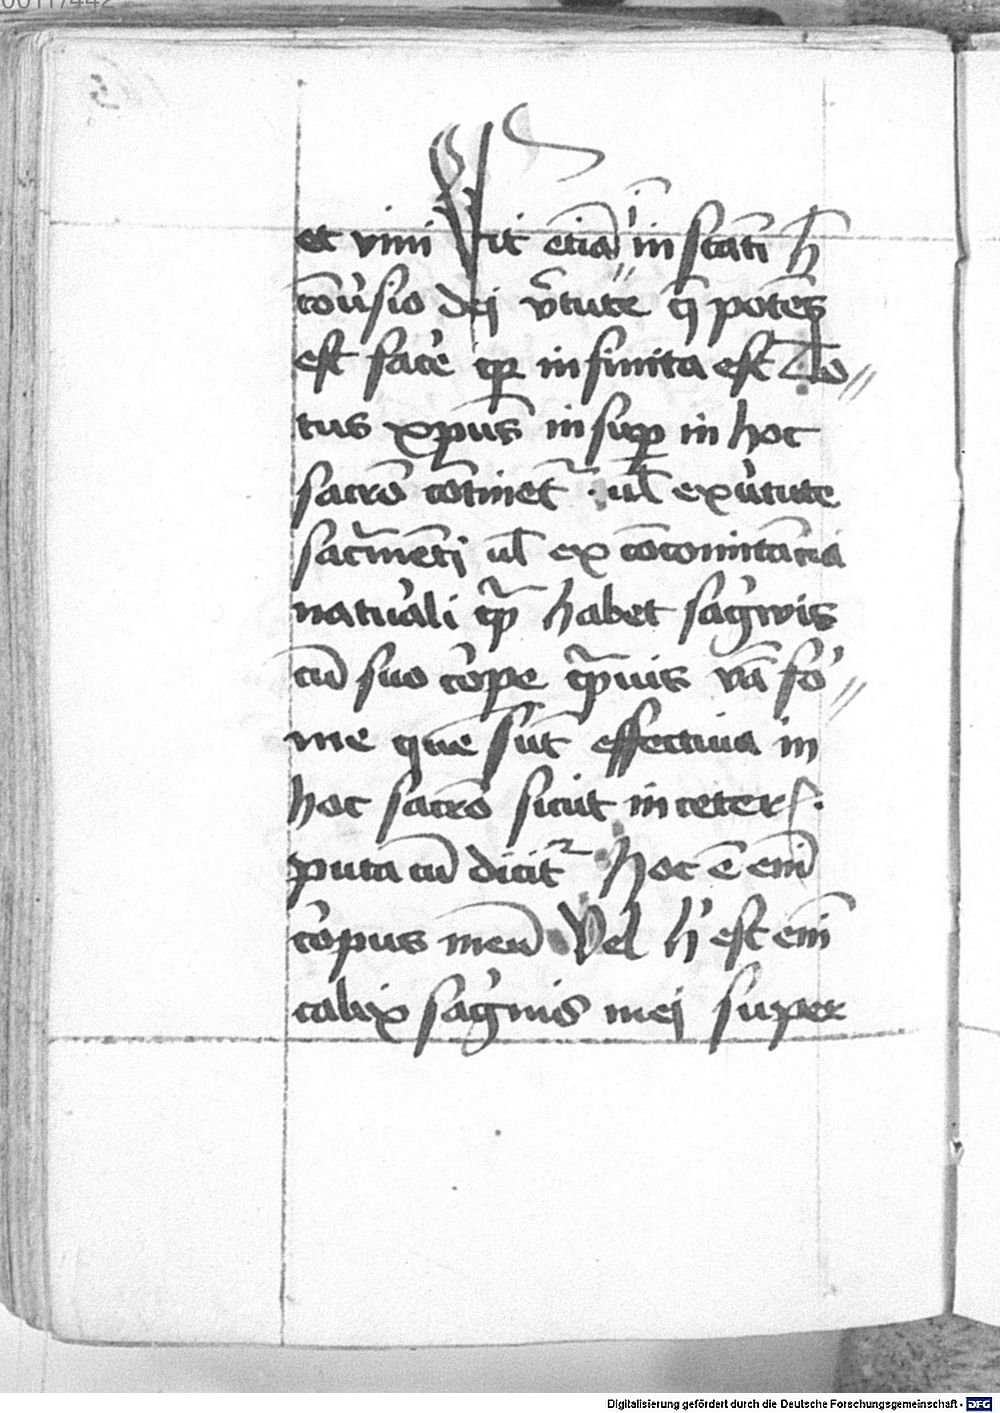 et vini Fit etiā in stāti h̄
cōuͥsio dei v̄tute q̄ potēs
est facͤe qꝛ infinita est To⸗
tus xp̄us insuꝑ in hoc
sacrō cōtinetᷣ · ul̄ ex uͥtute
sacͣmēti ul̄ ex cōcomitācia
natuͣali qͣ habet sāgwis
cū suo cͦpe qͣuis vā foͬ⸗
me que sūt effectiua in
hoc sacrō sicut in ceteꝛꝭ.
puta cū dicitᷣ Hoc ē enī
coͬpus meū Vel hͥ est enī
calix sāgͥnis mei super
Digitalisierung gefördert durch die Deutsche Forschungsgemeinschaft - DFG